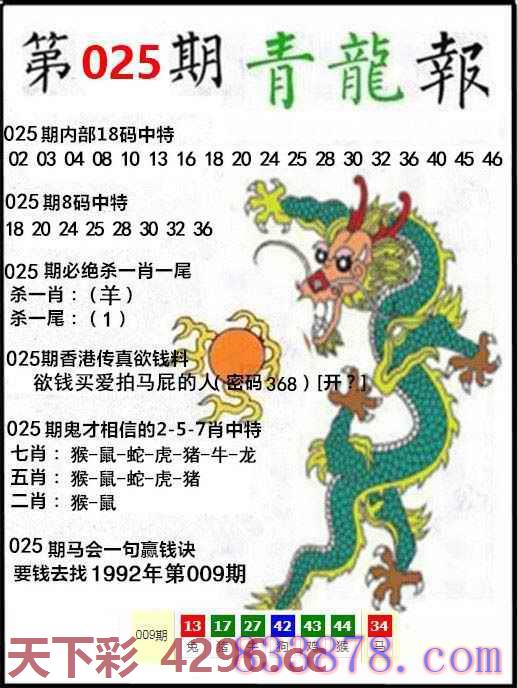 第025期青龍報
025期内部18码中特
02 03 04 08 10 13 16 18 20 24 25 28 30 32 36 40 45 46
025期8码中特
18 20 24 25 28 30 32 36
025期必绝杀一肖一尾
杀一肖：（羊）
杀一尾：（1）
025期香港传真欲钱料
欲钱买爱拍马屁的人（密码368）[开？]
025期鬼才相信的2-5-7肖中特
七肖：猴-鼠-蛇-虎-猪-牛-龙
五肖：猴-鼠-蛇-虎-猪
二肖：猴-鼠
025期马会一句赢钱诀
要钱去找1992年第009期
009期 13 17 27 42 43 44 34
兔 狗 鸡 猴 马
天下彩 4296.cc
833878.com